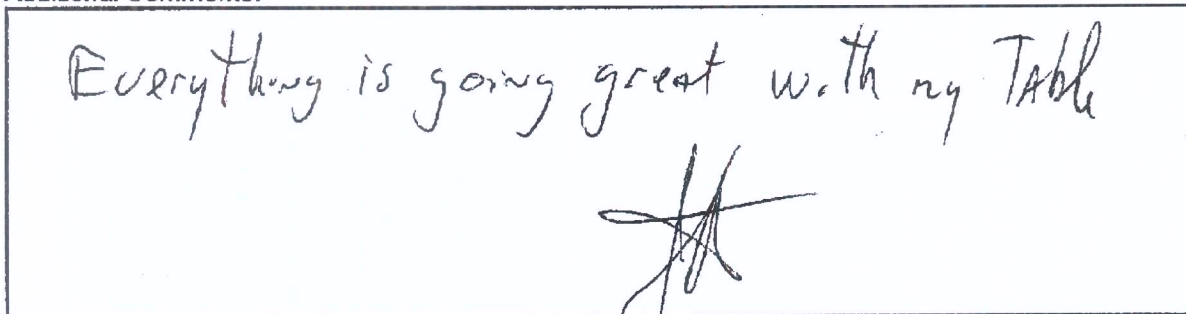 Everything is going great with my TAble